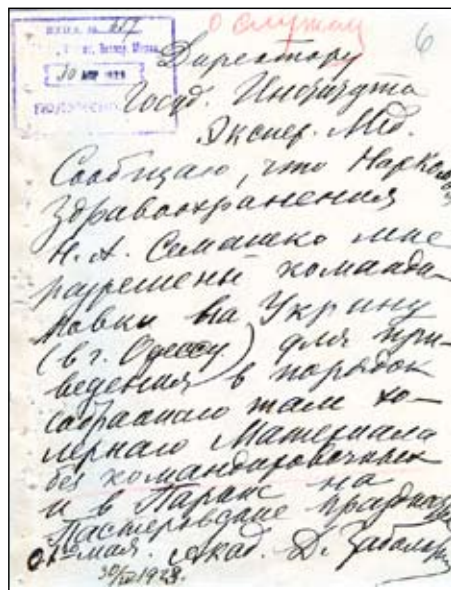 И.Э.М. № 657
30 АПР 1923
О службе
6
Директору
Госуд. Института
Экспер. Мед.
Сообщаю, что Нарком
Здравоохранения
Н. А. Семашко мне
разрешены команди-
ровки на Украину
(в г. Одессу) для при-
ведения в порядок
собраннаго там хо-
лернаго Материала
без командировочных
и в Париж на
Пастеровские празднества
мая. Акад. Д. Заболотный
30/IV 1923.